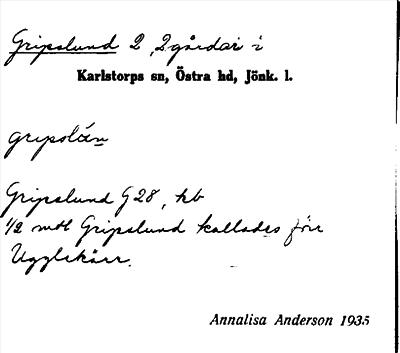 Gripslund 2, 2 gårdar i
Karlstorps sn, Östra hd, Jönk. l.
Gripslund G28, kb
1/2 mtl Gripslund kallades förr
Ugglekärr.
Annalisa Anderson 1935